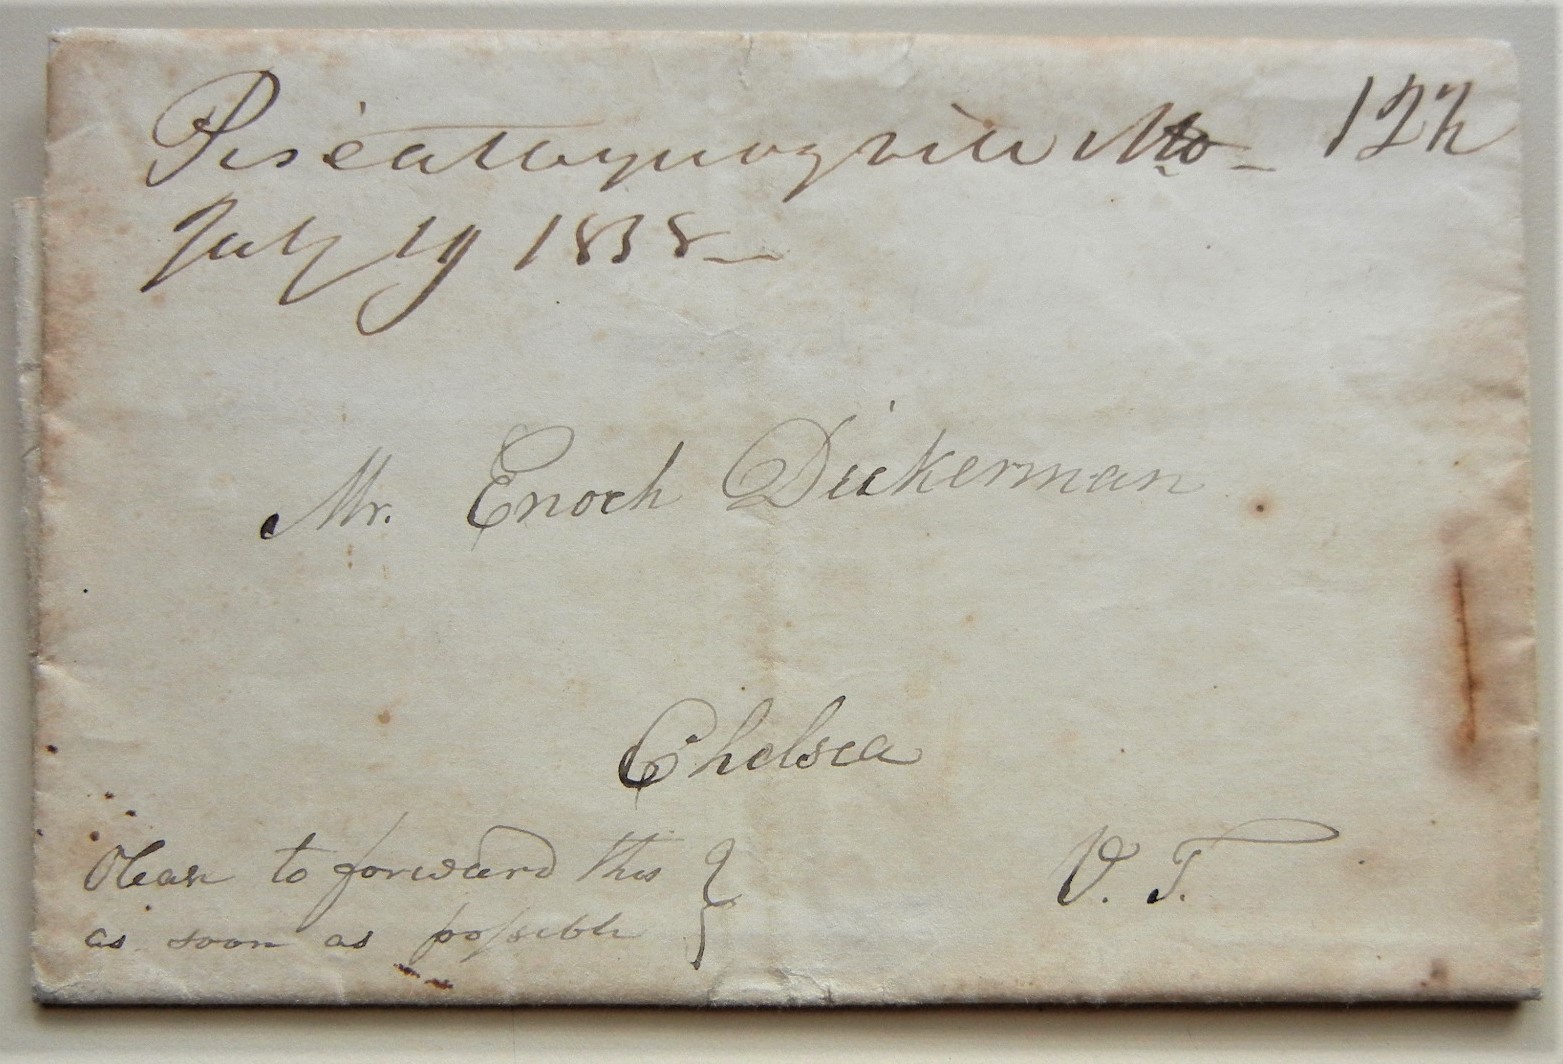 Piscataquogville 12½
July 19 1838
Mr. Enoch Dickerman
Chelsea
V. T.
Please to forward this
as soon as possible